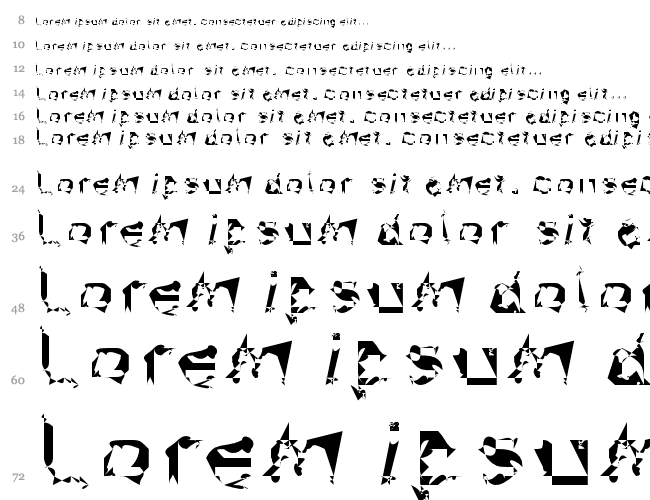 8 Lorem ipsum dolor sit emet. Consectetuer edipiscing elit...
10 Lorem ipsum dolor sit emet. Consectetuer edipiscing elit...
12 Lorem ipsum dolor sit emet. Consectetuer edipiscing elit...
14 Lorem ipsum dolor sit emet. Consectetuer edipiscing elit...
16 Lorem ipsum dolor sit emet. Consectetuer edipiscing
18 Lorem ipsum dolor sit emet. Consectetuer edipis
24 Lorem ipsum dolor sit emet. Consec
36 Lorem ipsum dolor sit e
48 Lorem ipsum dolor
60 Lorem ipsum d
72 Lorem ipsum